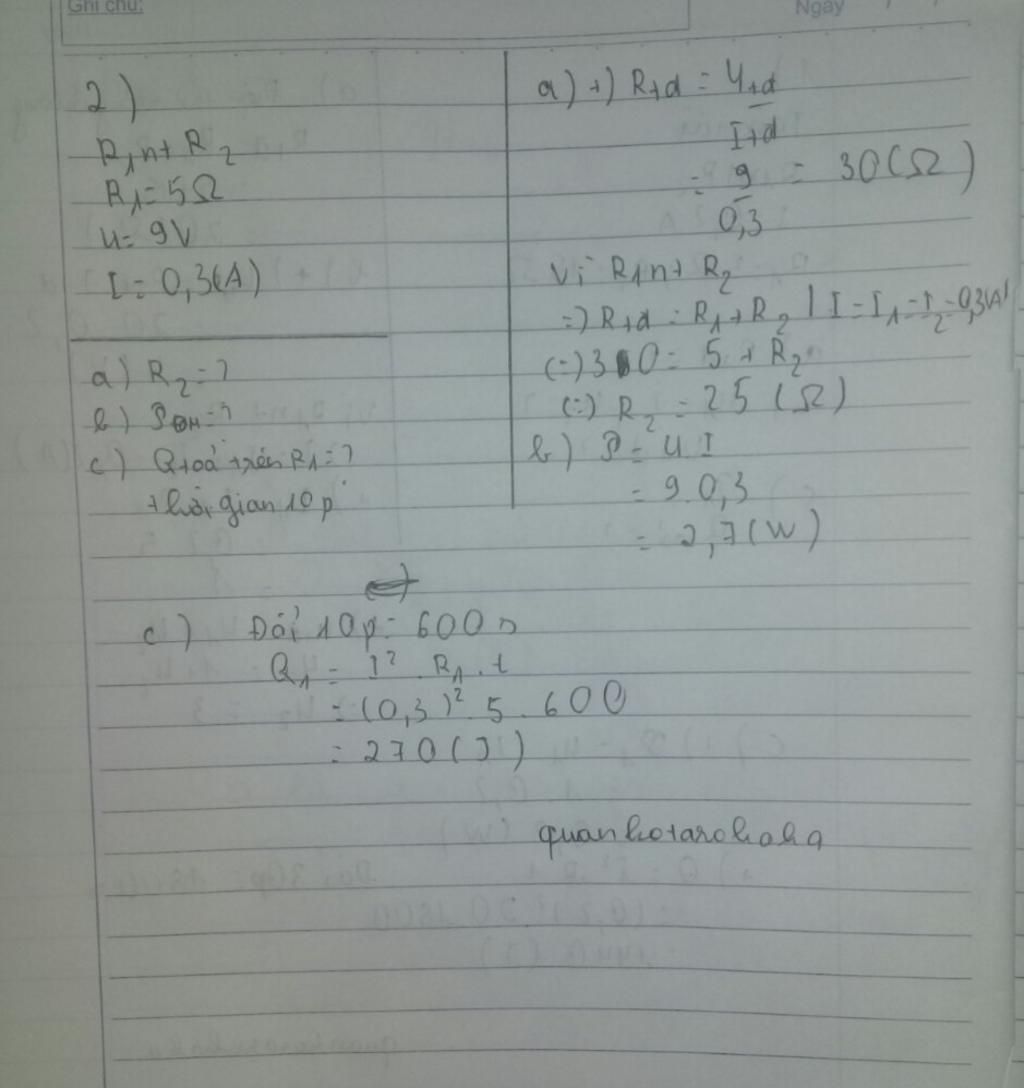 Ghi chú:
Ngày
2)
R₁nt R₂
R₁=5Ω
U=9V
I=0,3(A)
a) R₂=?
b) P_ĐM=?
c) Qtoả trên R₁=?
thời gian 10p
a) +) Rtđ = Utđ
Itđ
= 9 = 30(Ω)
0,3
Vì R₁nt R₂
=) Rtđ = R₁+R₂ | I=I₁=I₂=0,3(A)
(=) 30 = 5 + R₂
(=) R₂ = 25 (Ω)
b) P = U I
= 9.0,3
= 2,7(W)
c) Đổi 10p = 600s
Q₁ = I². R₁. t
= (0,3)². 5. 600
= 270 (J)
quanhotarohaha